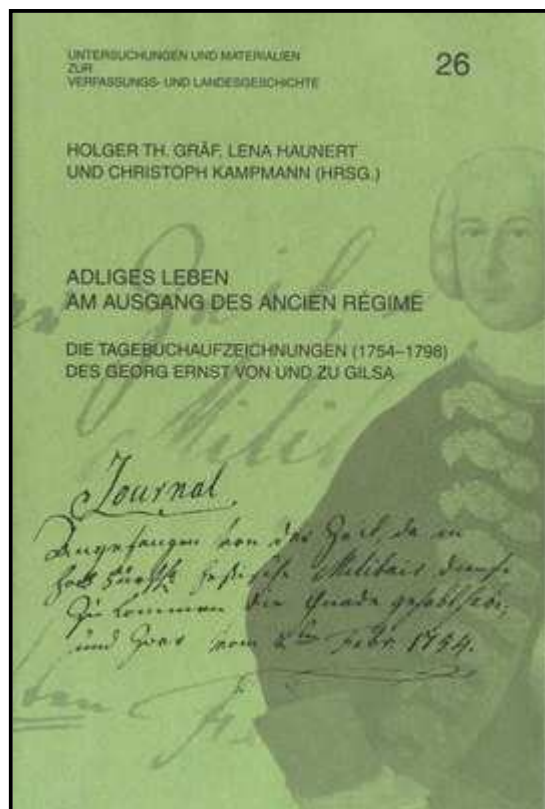 UNTERSUCHUNGEN UND MATERIALIEN
ZUR
VERFASSUNGS- UND LANDESGESCHICHTE
26
HOLGER TH. GRÄF, LENA HAUNERT
UND CHRISTOPH KAMPMANN (HRSG.)
ADLIGES LEBEN
AM AUSGANG DES ANCIEN RÉGIME
DIE TAGEBUCHAUFZEICHNUNGEN (1754–1798)
DES GEORG ERNST VON UND ZU GILSA
Journal
Angefangen von der Zeit, da in
Hessische Militair dienste
zu kommen die Gnade gehabt
und zwar vom Febr. 1754.